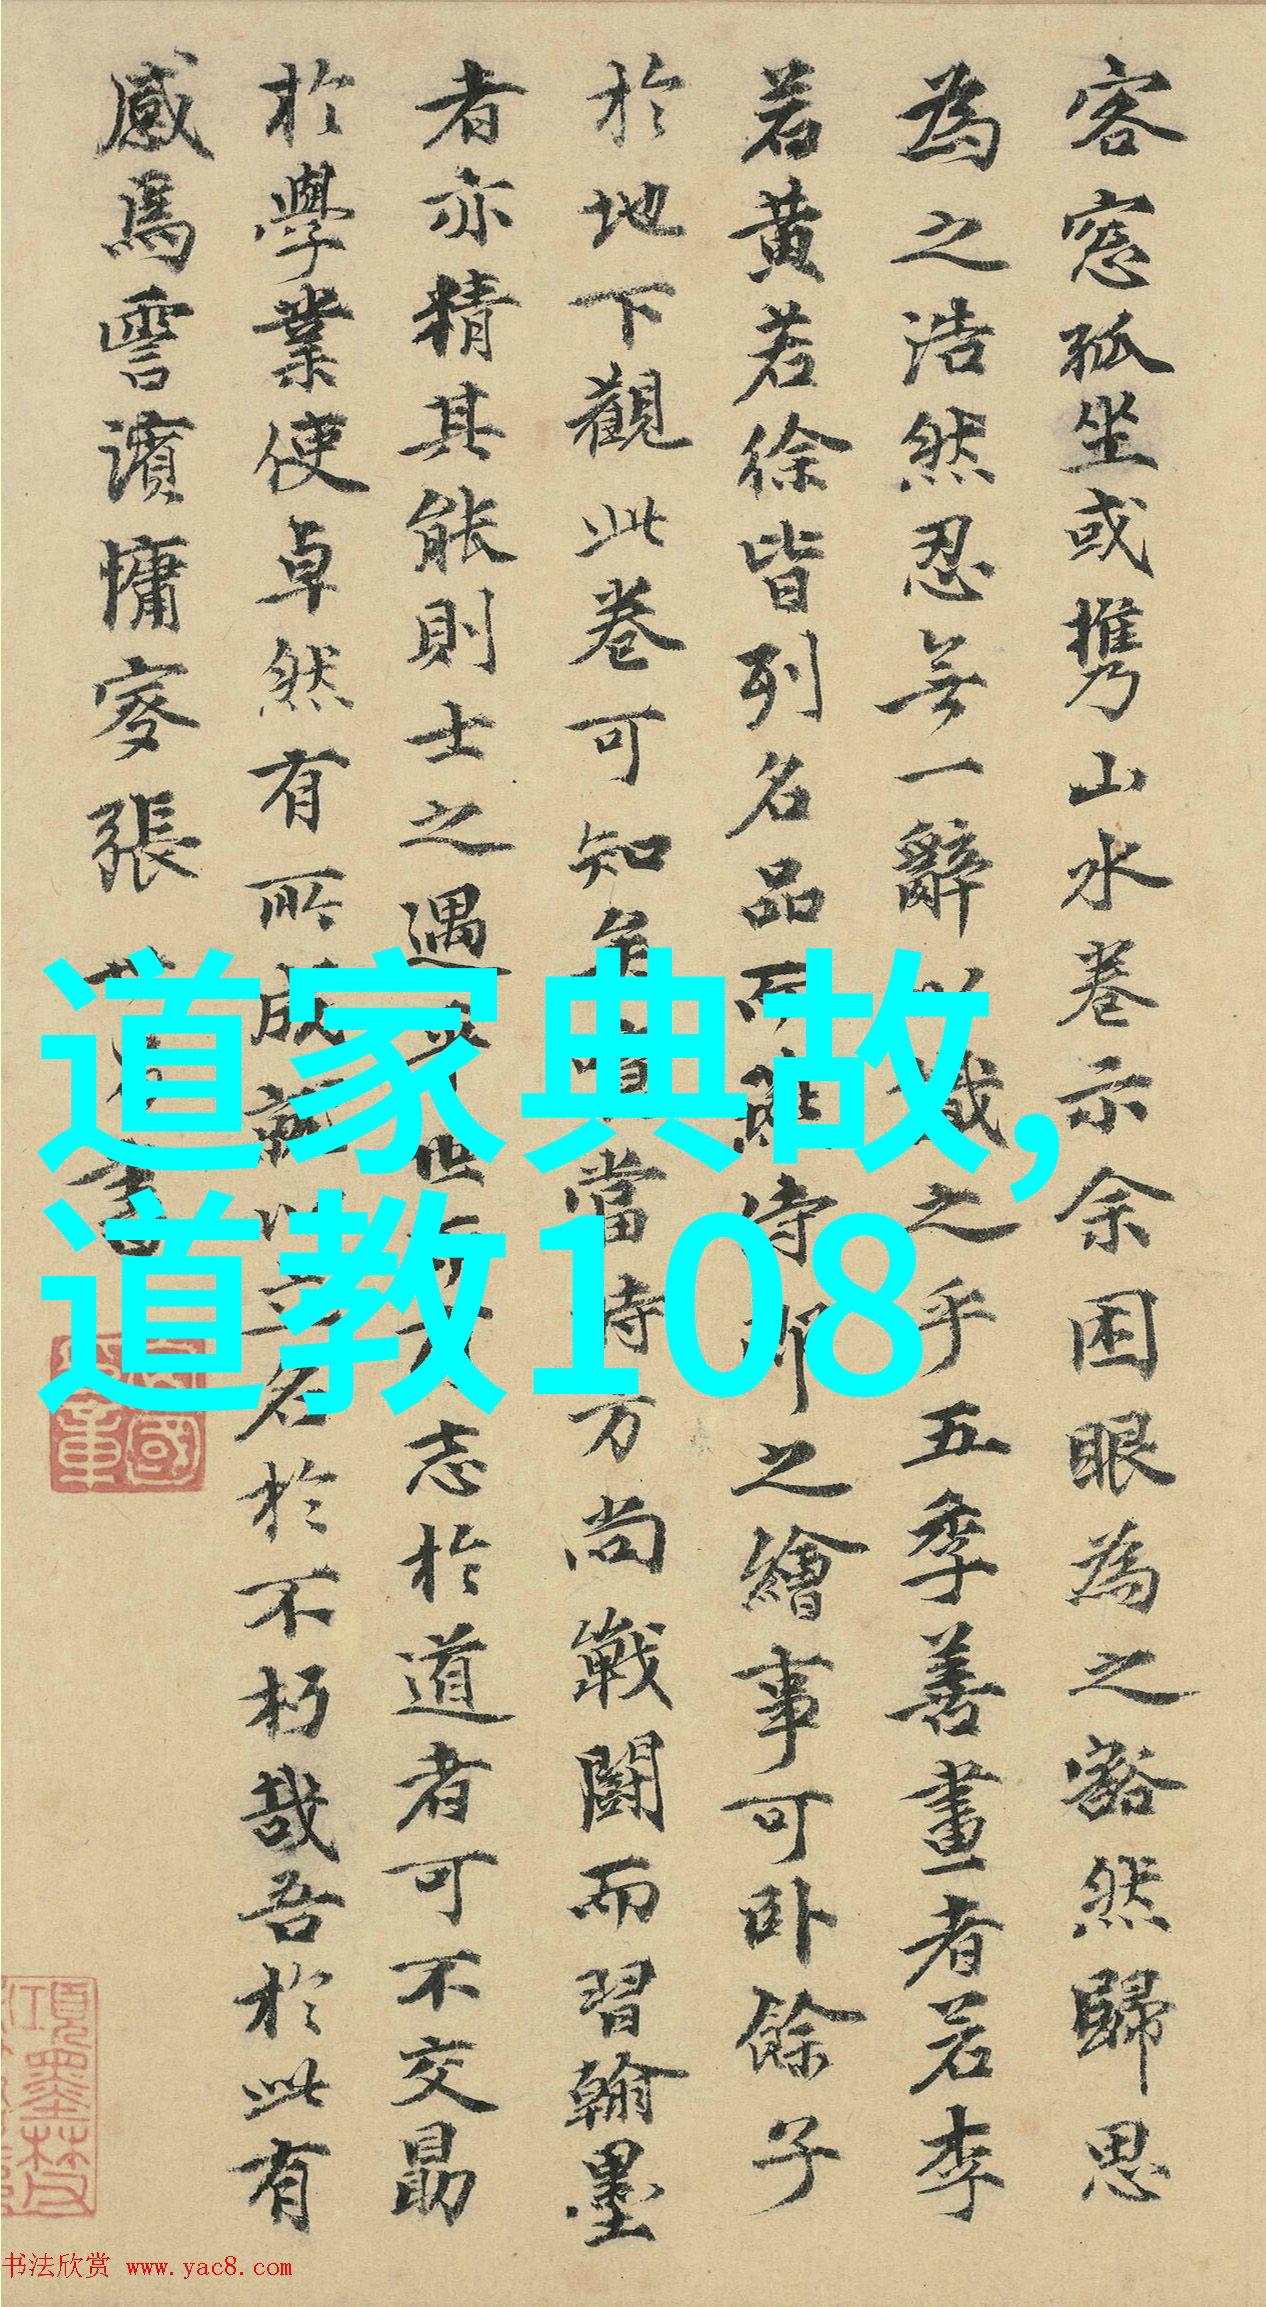 客窓孤坐或携山水卷示余困眼為之豁然歸思
為之浩然忍無一辭以識之乎五季善畫者若李
若黄若徐皆列名品而駙侍郎之繪事可卧餘子
於地下觀此卷可知矣當時方尚戰鬪而習翰墨
者亦精其能則士之遇世志於道者可不交勗
於學業使卓然有所成就以立名於不朽哉吾於此有
感焉譻濱慵叜張
道家典故,
道教108
书法欣赏 www.yac8.com